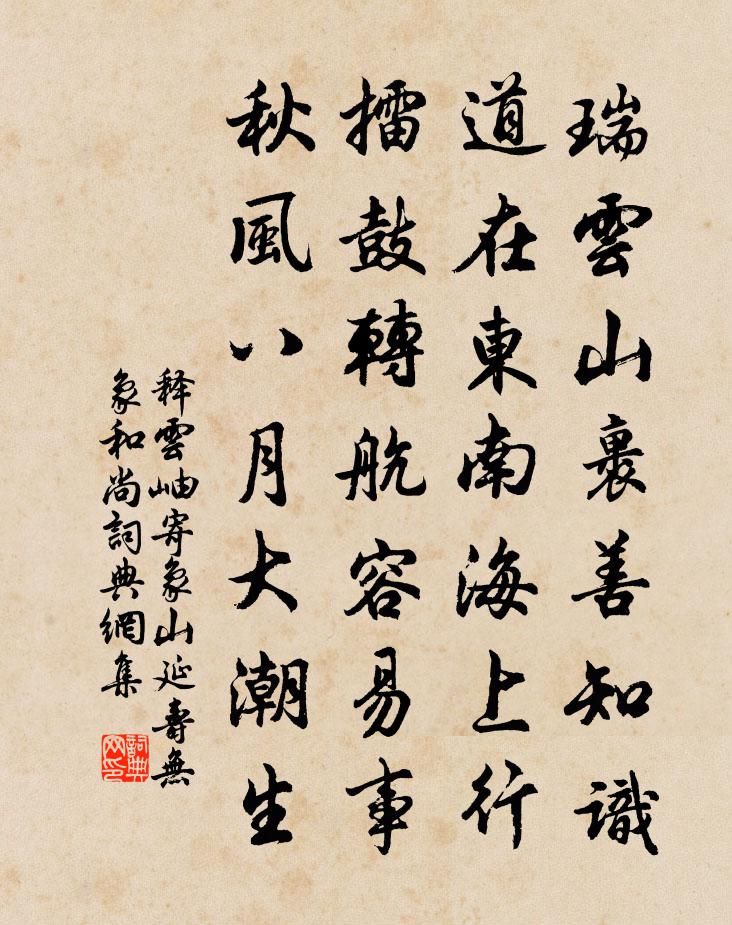 瑞雲山裏善知識
道在東南海上行
擂鼓轉航容易事
秋風八月大潮生
释雲岫寄象山延壽無
象和尚詞典網集
詞典
网印